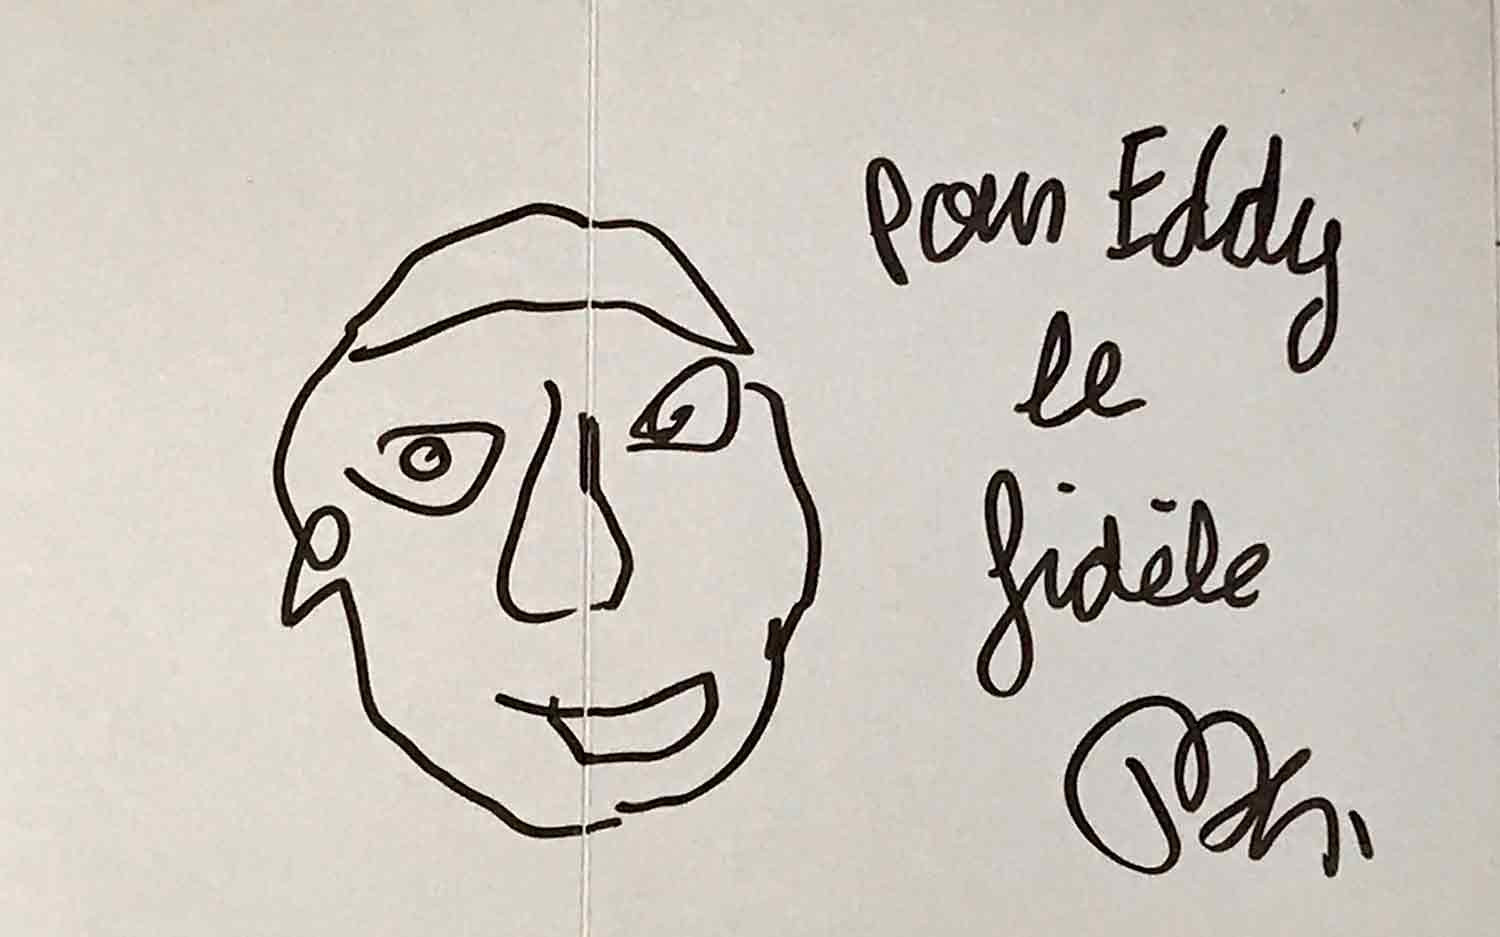 pour Eddy
le
fidèle